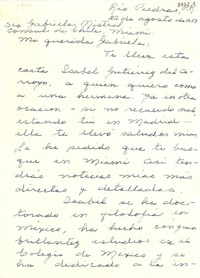 Río Piedras, P.R.
22 de agosto de 1953
Sra. Gabriela Mistral
Consul de Chile, Miami
Mi querida Gabriela:
Te lleva esta
carta Isabel Gutierrez del A-
rroyo, a quien quiero como
a una hermana. Ya en otra
ocasion - si no recuerdo mal
estando tú en Madrid -
ella te llevó saludos míos
Le he pedido que te bus-
que en Miami. Así ten-
drás noticias mías más
directas y detalladas.
Isabel se ha doc-
torado en filosofía en
México, ha hecho con gran
brillantez estudios en el
Colegio de Mexico y se
ha dedicado a la in-